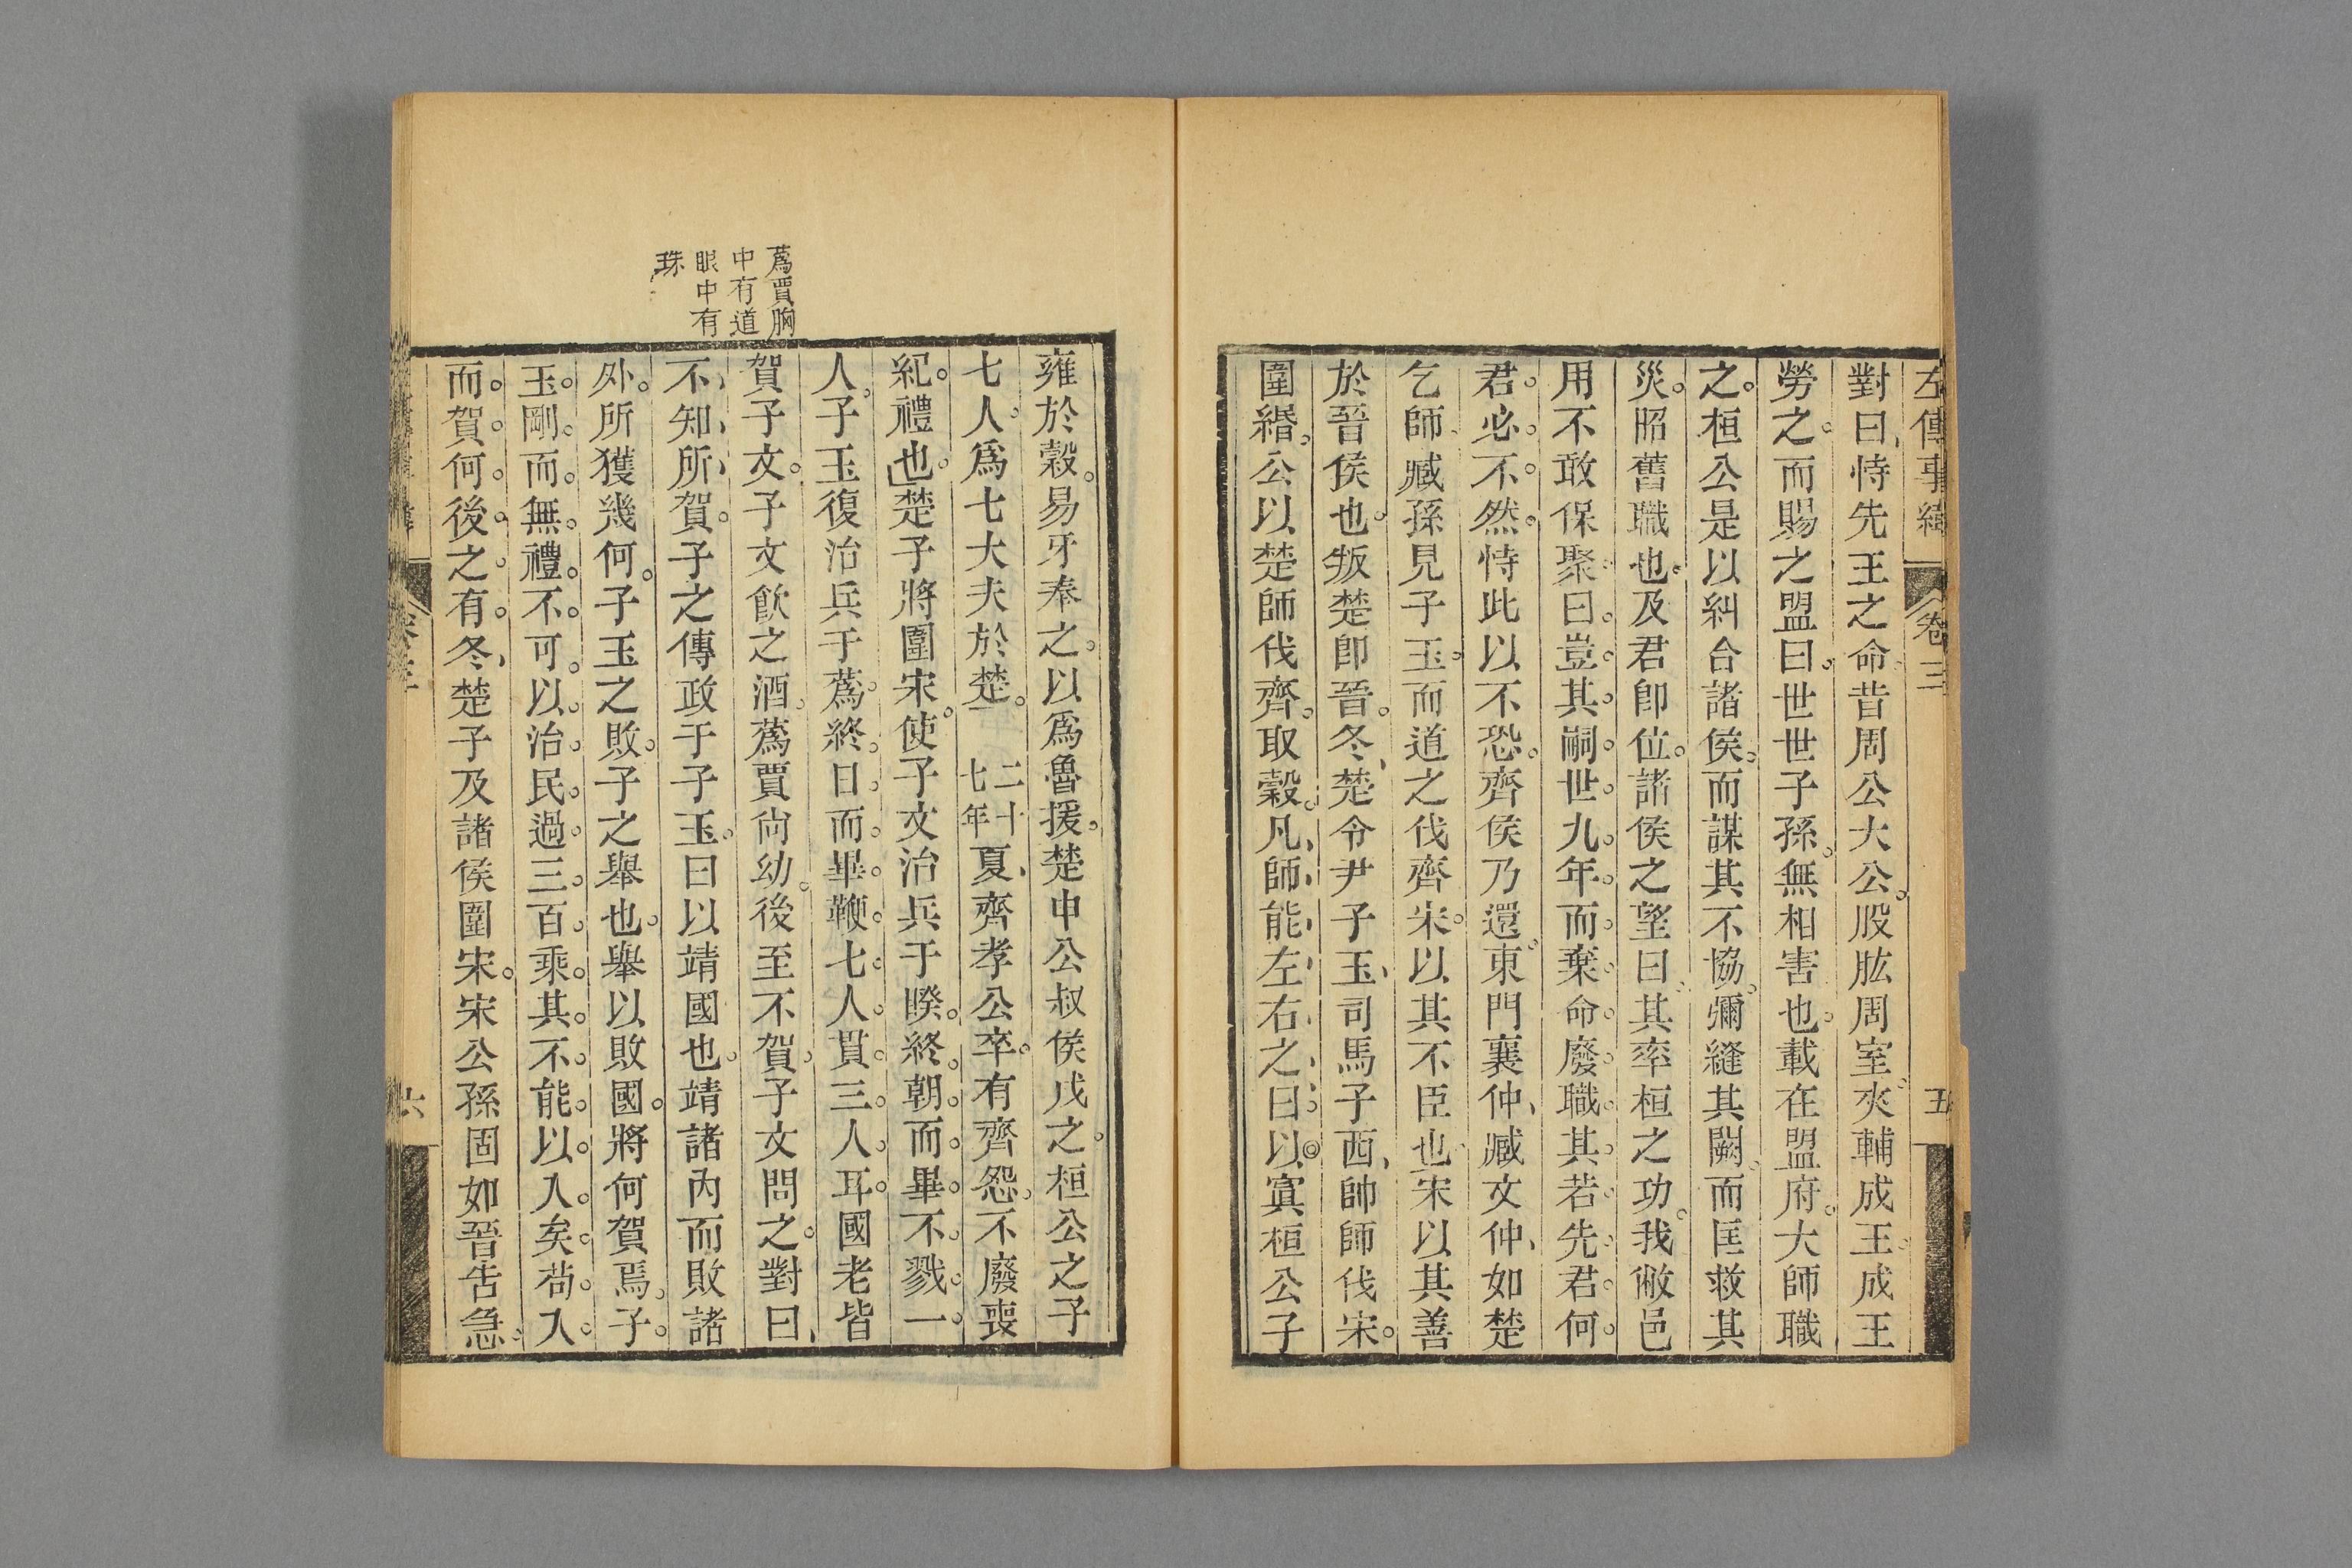 左傳事緯 卷三 五
對曰恃先王之命昔周公大公股肱周室夾輔成王成王
勞之而賜之盟曰世世子孫無相害也載在盟府大師職
之桓公是以糾合諸侯而謀其不協彌縫其闕而匡救其
災昭舊職也及君卽位諸侯之望曰其率桓之功我敝邑
用不敢保聚曰豈其嗣世九年而棄命廢職其若先君何
君必不然恃此以不恐齊侯乃還東門襄仲臧文仲如楚
乞師臧孫見子玉而道之伐齊宋以其不臣也宋以其善
於晉侯也叛楚卽晉冬楚令尹子玉司馬子西帥師伐宋
圍緡公以楚師伐齊取穀凡師能左右之曰以寘桓公子
雍於穀易牙奉之以爲魯援楚申公叔侯戍之桓公之子
七人爲七大夫於楚二十七年夏齊孝公卒有齊怨不廢喪
紀禮也楚子將圍宋使子文治兵于睽終朝而畢不戮一
人子玉復治兵于蔿終日而畢鞭七人貫三人耳國老皆
賀子文子文飮之酒蔿賈尙幼後至不賀子文問之對曰
不知所賀子之傳政于子玉曰以靖國也靖諸內而敗諸
外所獲幾何子玉之敗子之舉也舉以敗國將何賀焉子
玉剛而無禮不可以治民過三百乘其不能以入矣苟入
而賀何後之有冬楚子及諸侯圍宋宋公孫固如晉告急
蔿賈胸
中有道
眼中有
珠
六